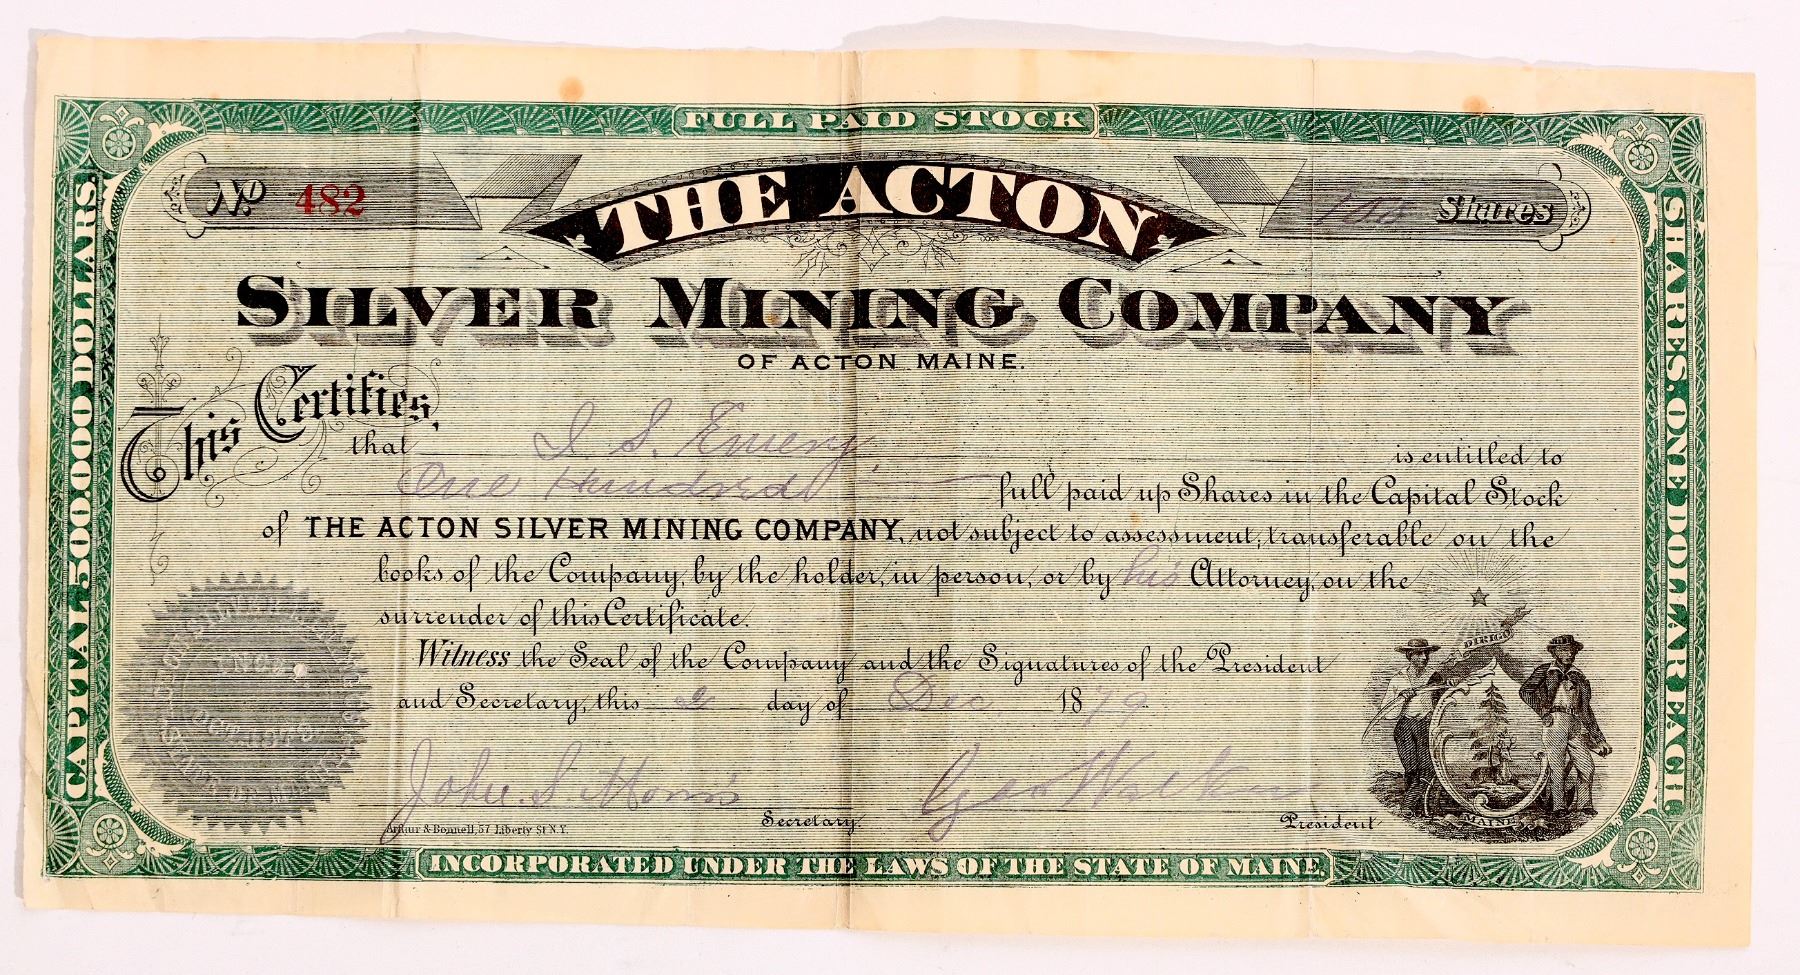 FULL PAID STOCK
No 482
THE ACTON
100 Shares
SILVER MINING COMPANY
OF ACTON MAINE.
This Certifies,
that I. S. Emery is entitled to
One Hundred full paid up Shares in the Capital Stock
of THE ACTON SILVER MINING COMPANY, not subject to assessment, transferable on the
books of the Company, by the holder, in person, or by his Attorney, on the
surrender of this Certificate.
Witness the Seal of the Company and the Signatures of the President
and Secretary, this 2 day of Dec 1879
John S. Morris Secretary.
Geo Walker President
Arthur & Bonnell, 57 Liberty St N.Y.
DIRIGO
MAINE
CAPITAL 500.000 DOLLARS.
SHARES. ONE DOLLAR EACH
INCORPORATED UNDER THE LAWS OF THE STATE OF MAINE.